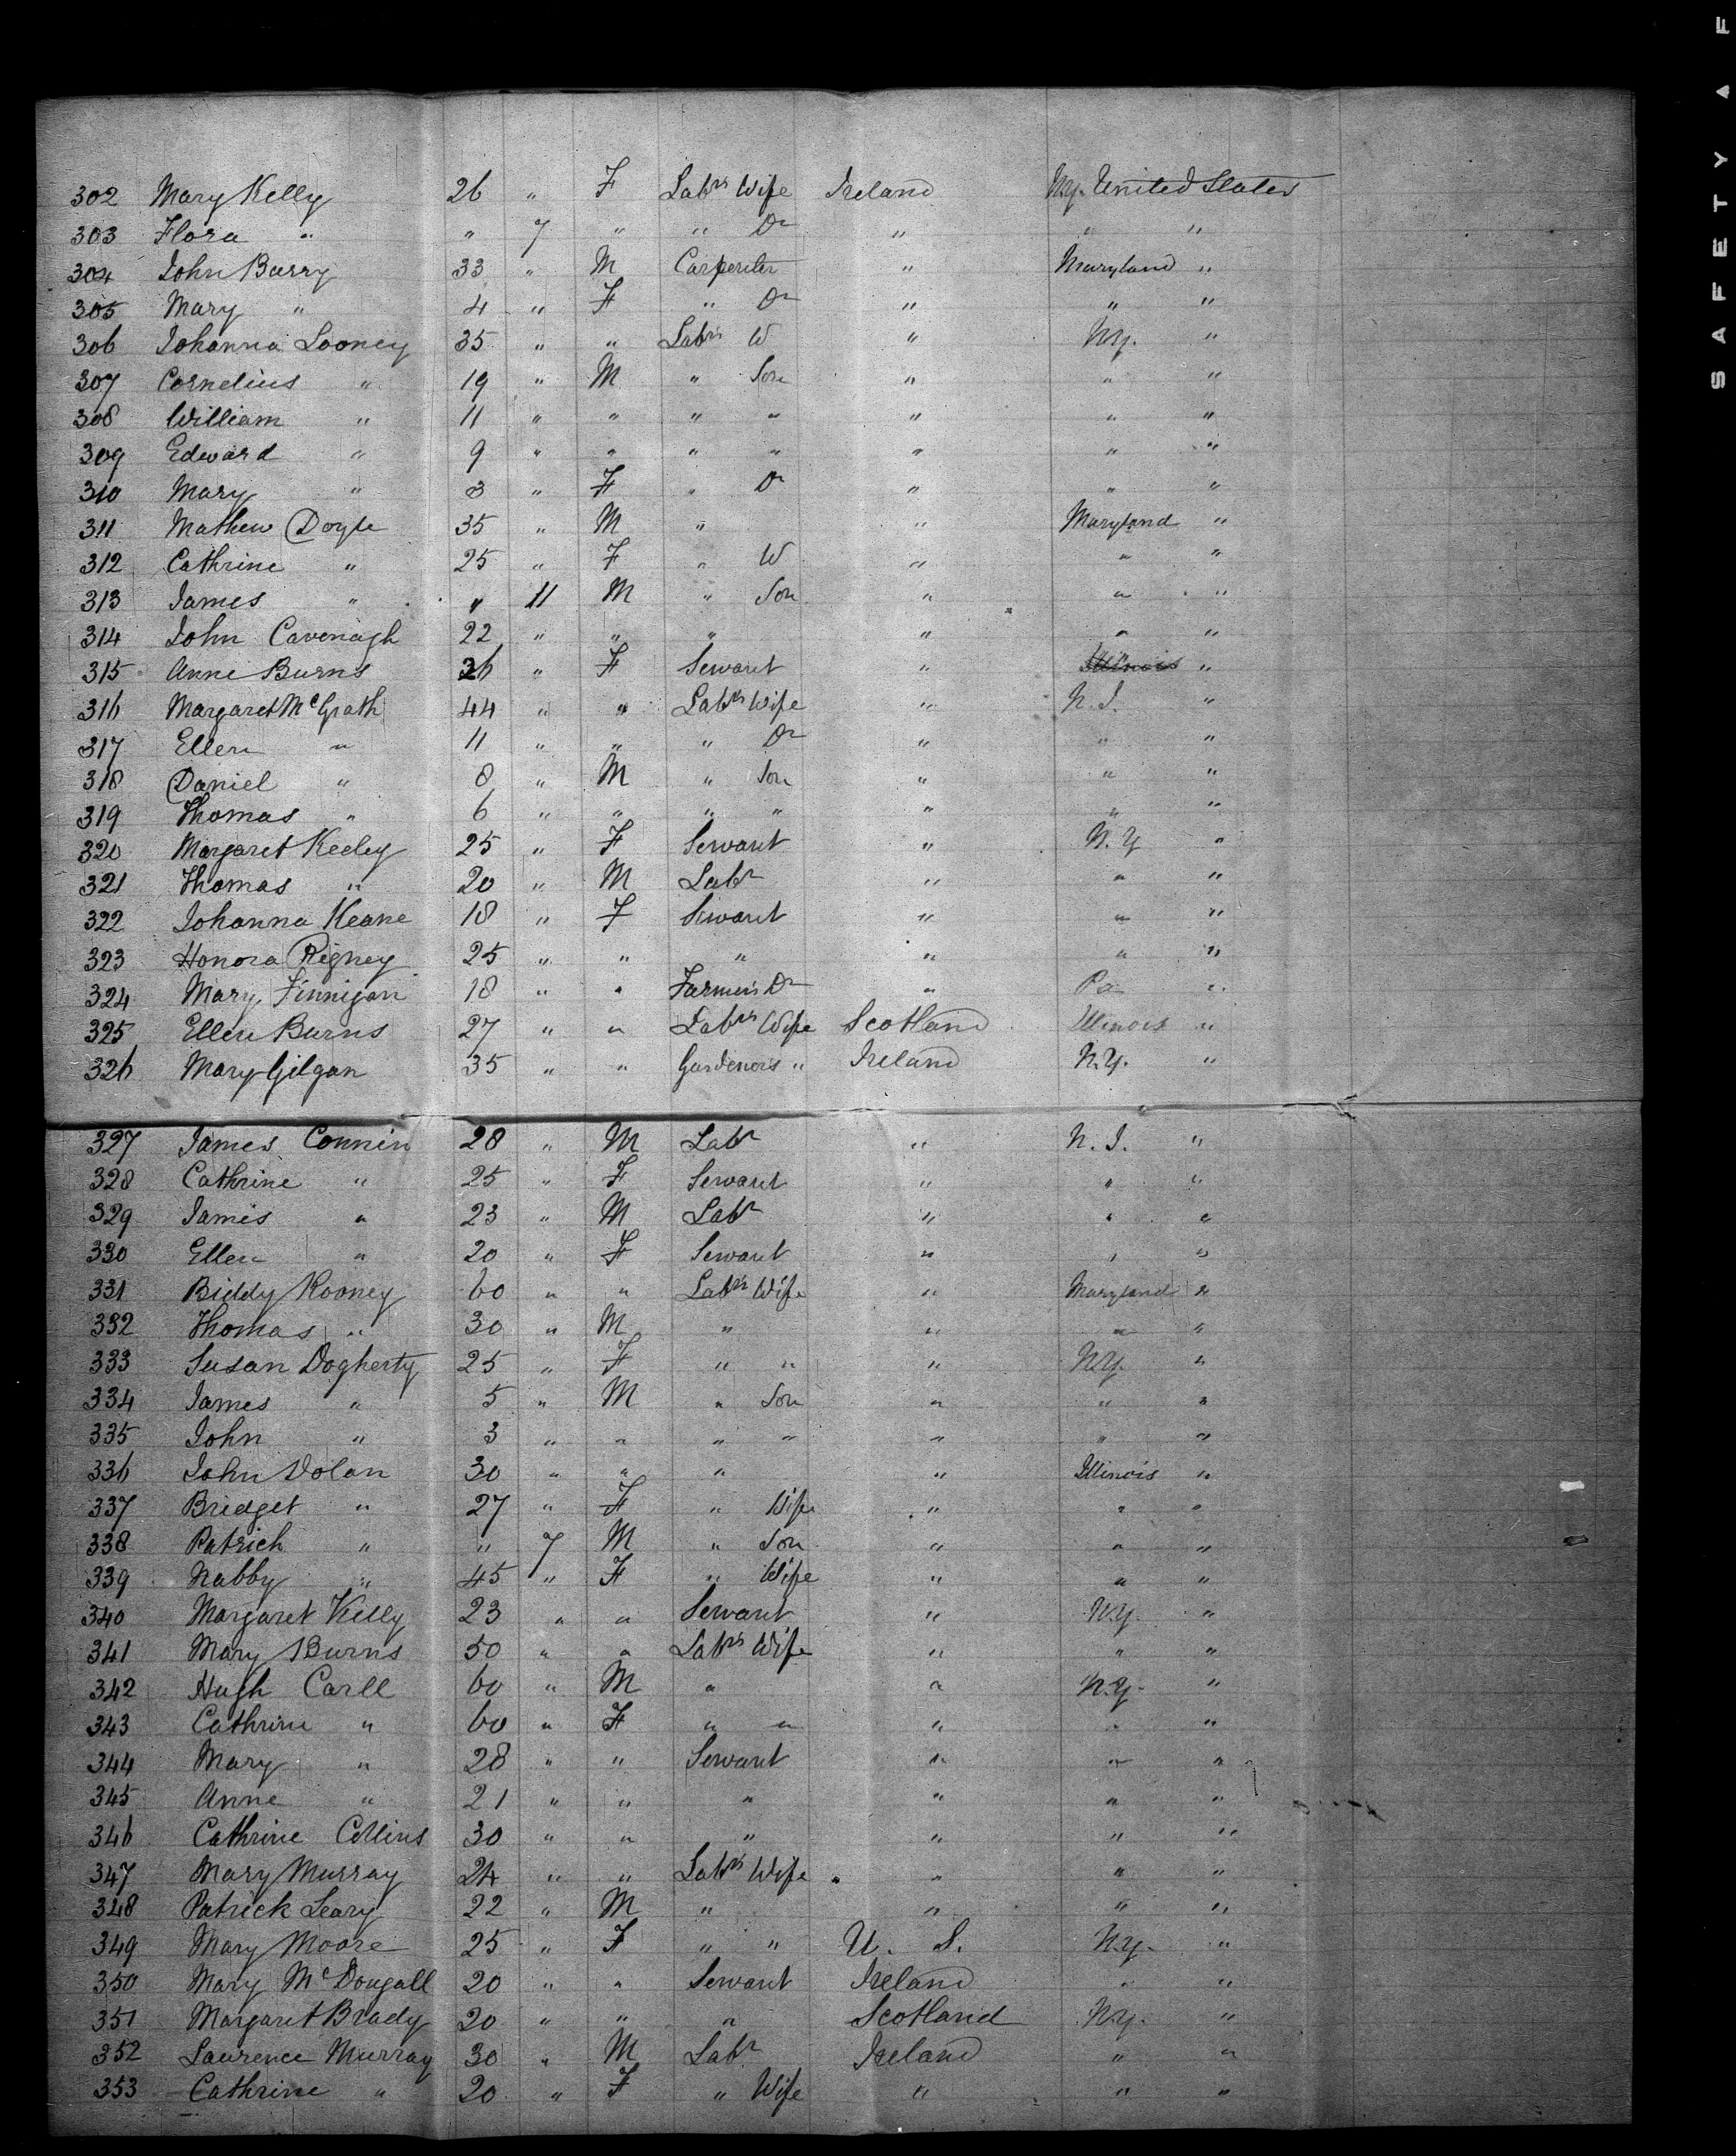 SAFETY AF
302 Mary Kelly 26 " F Labrs Wife Ireland Ny. United States
303 Flora " " 7 " " Dr " " "
304 John Barry 33 " M Carpenter " Maryland "
305 Mary " 4 " F " Dr " " "
306 Johanna Looney 35 " " Labrs W " Ny. "
307 Cornelius " 19 " M " Son " " "
308 William " 11 " " " " " " "
309 Edward " 9 " " " " " " "
310 Mary " 3 " F " Dr " " "
311 Mathew Doyle 35 " M " " Maryland "
312 Cathrine " 25 " F " W " " "
313 James " " 11 M " Son " " "
314 John Cavenagh 22 " " " " " "
315 Anne Burns 26 " F Servant " Illinois "
316 Margaret McGrath 44 " " Labrs Wife " N.J. "
317 Ellen " 11 " " " Dr " " "
318 Daniel " 8 " M " Son " " "
319 Thomas " 6 " " " " " " "
320 Margaret Keeley 25 " F Servant " N.Y "
321 Thomas " 20 " M Labr " " "
322 Johanna Keane 18 " F Servant " " "
323 Honora Rigney 25 " " " " " "
324 Mary Finnigan 18 " " Farmers Dr " Pa "
325 Ellen Burns 27 " " Labrs Wife Scotland Illinois "
326 Mary Gilgan 35 " " Gardener's " Ireland N.Y. "
327 James Connin 28 " M Labr " N.J. "
328 Cathrine " 25 " F Servant " " "
329 James " 23 " M Labr " " "
330 Ellen " 20 " F Servant " " "
331 Biddy Rooney 60 " " Labrs Wife " Maryland "
332 Thomas " 30 " M " " " "
333 Susan Dogherty 25 " F " " " N.Y. "
334 James " 5 " M " Son " " "
335 John " 3 " " " " " " "
336 John Dolan 30 " " " " Illinois "
337 Bridget " 27 " F " Wife " " "
338 Patrick " " 7 M " Son " " "
339 Nabby " 45 " F " Wife " " "
340 Margaret Kelly 23 " " Servant " N.Y. "
341 Mary Burns 50 " " Labrs Wife " " "
342 Hugh Carll 60 " M " " N.Y. "
343 Cathrine " 60 " F " " " " "
344 Mary " 28 " " Servant " " "
345 Anne " 21 " " " " " "
346 Cathrine Collins 30 " " " " " "
347 Mary Murray 24 " " Labrs Wife " " " "
348 Patrick Leary 22 " M " " " "
349 Mary Moore 25 " F " " U. S. N.Y. "
350 Mary McDougall 20 " " Servant Ireland " "
351 Margaret Brady 20 " " " Scotland N.Y. "
352 Laurence Murray 30 " M Labr Ireland " "
353 Cathrine " 20 " F " Wife " " "